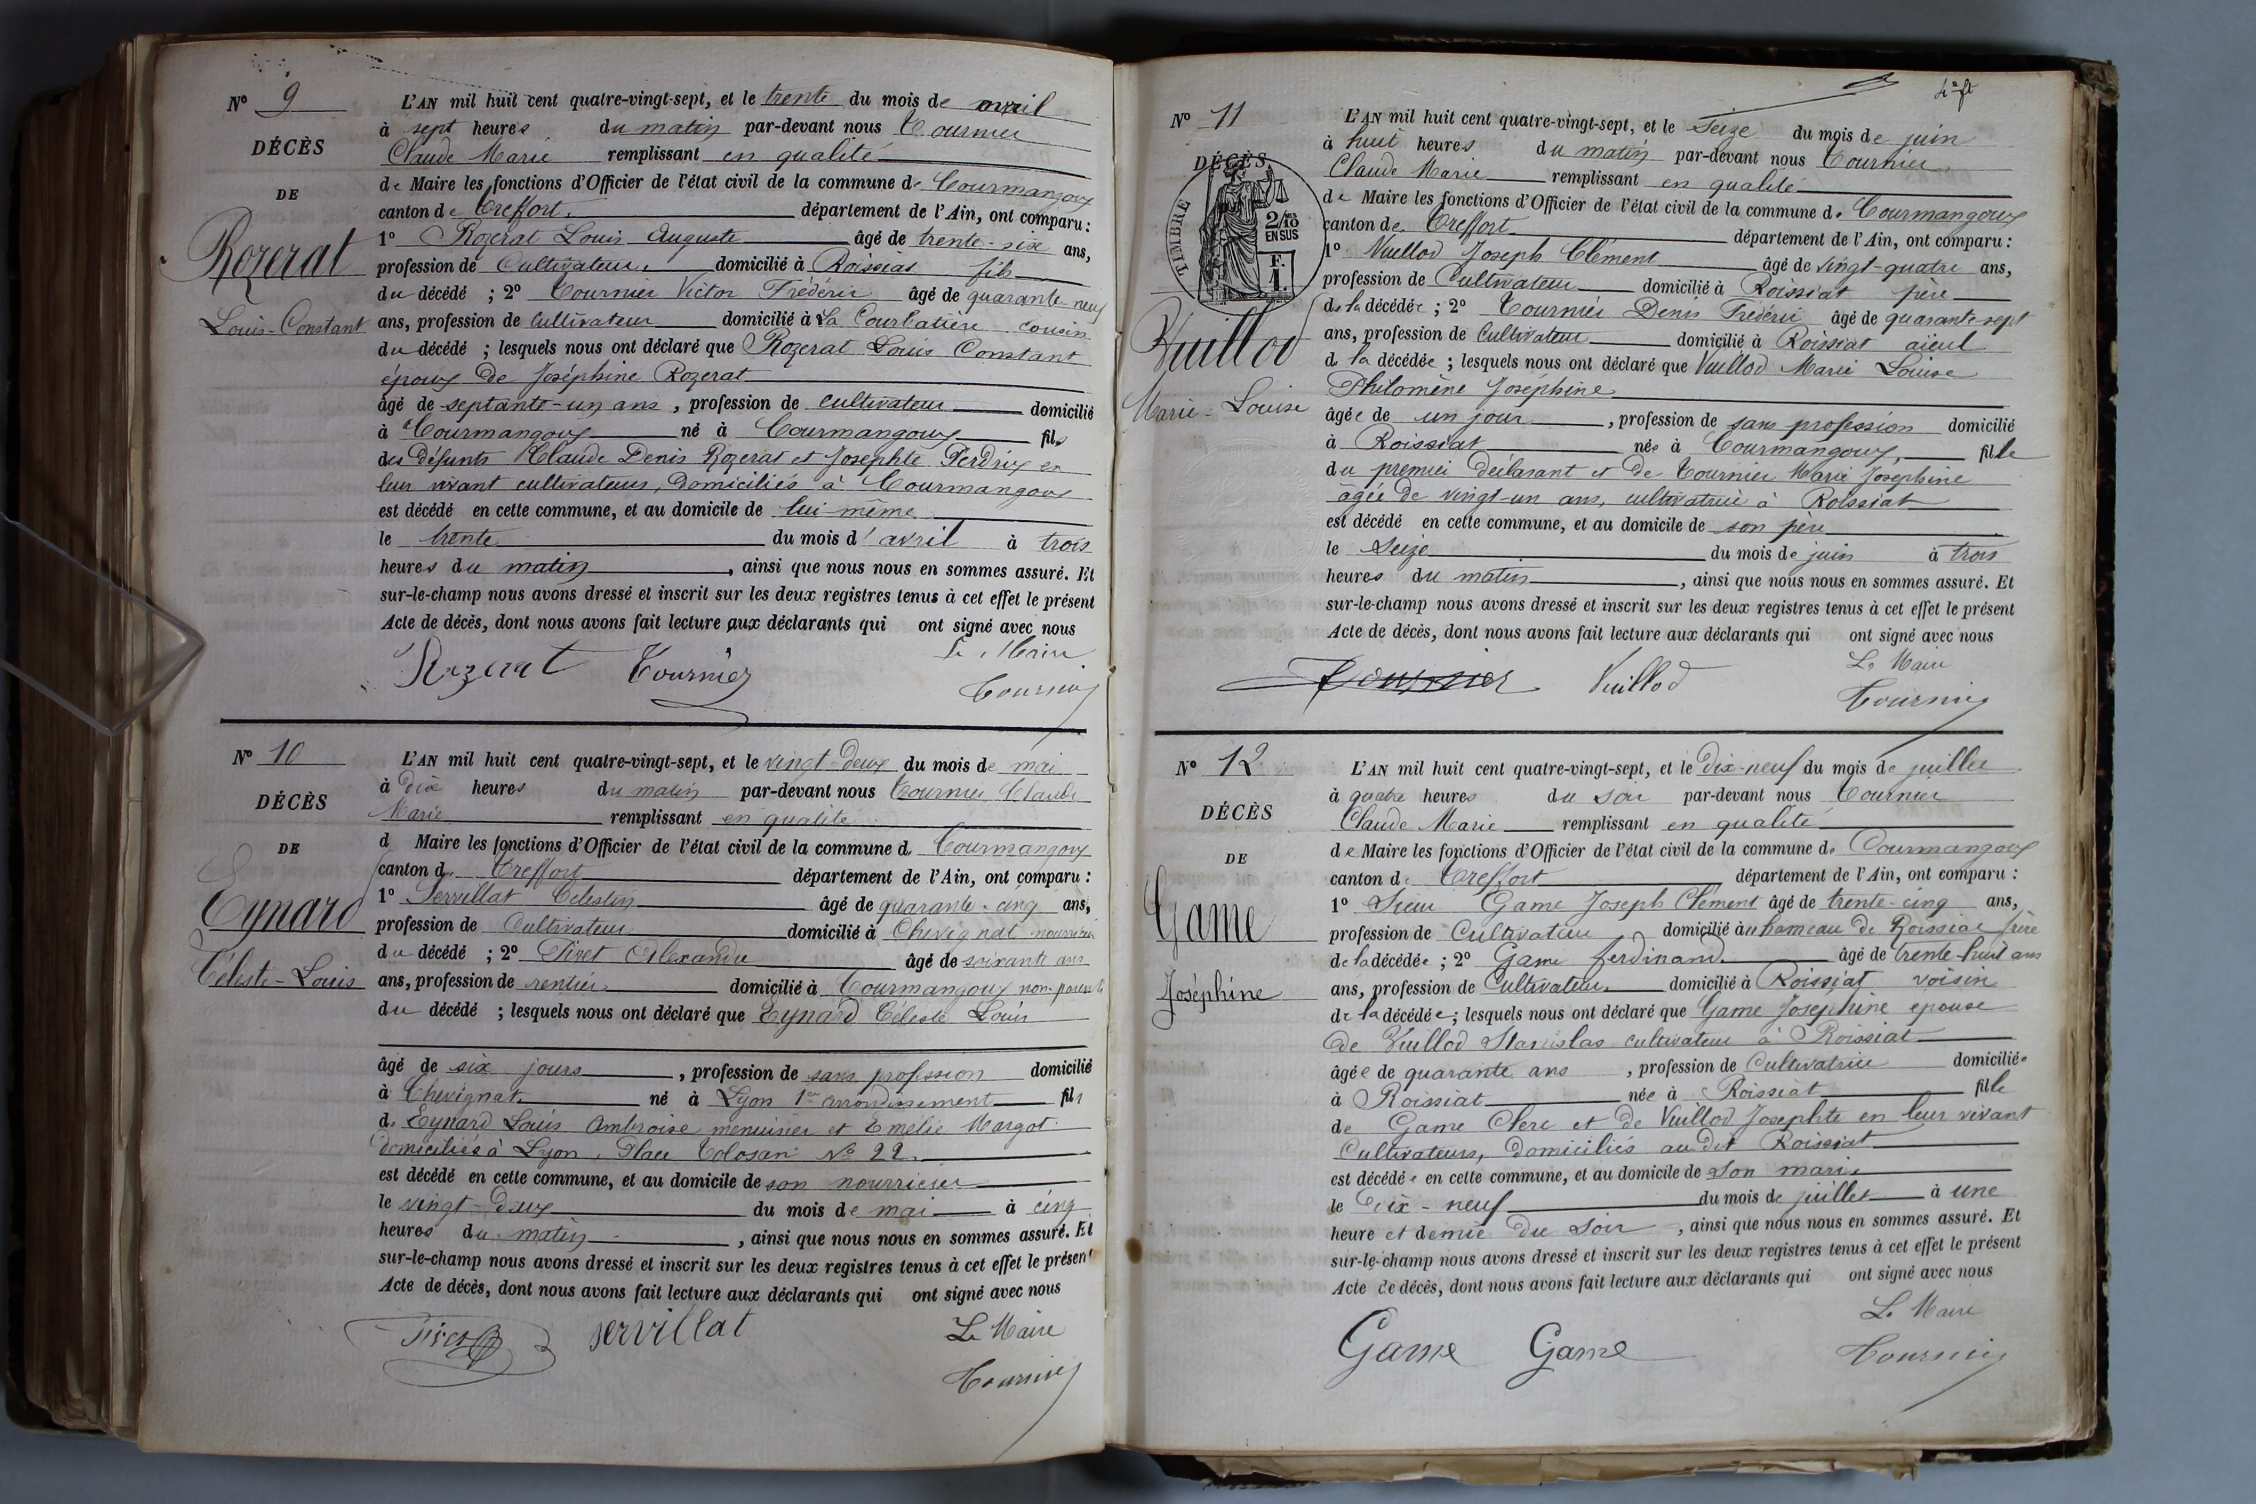 N° 9
DÉCÈS
DE
Rozerat
Louis-Constant
L'AN mil huit cent quatre-vingt-sept, et le trente du mois de avril
à sept heures du matin par-devant nous Tournier
Claude Marie remplissant en qualité
de Maire les fonctions d'Officier de l'état civil de la commune de Courmangoux
canton de Treffort département de l'Ain, ont comparu :
1° Rozerat Louis Auguste âgé de trente-six ans,
profession de Cultivateur domicilié à Roissiat fils
du décédé ; 2° Tournier Victor Frédéric âgé de quarante-neuf
ans, profession de Cultivateur domicilié à La Courbatière cousin
du décédé ; lesquels nous ont déclaré que Rozerat Louis Constant
époux de Joséphine Rozerat
âgé de septante-un ans, profession de cultivateur domicilié
à Courmangoux né à Courmangoux fils
des défunts Claude Denis Rozerat et Josephte Perdrix en
leur vivant cultivateurs, domiciliés à Courmangoux
est décédé en cette commune, et au domicile de lui-même
le trente du mois d'avril à trois
heures du matin, ainsi que nous nous en sommes assuré. Et
sur-le-champ nous avons dressé et inscrit sur les deux registres tenus à cet effet le présent
Acte de décès, dont nous avons fait lecture aux déclarants qui ont signé avec nous
Le Maire
Rozerat Tournier Tournier
N° 10
DÉCÈS
DE
Eynard
Céleste-Louis
L'AN mil huit cent quatre-vingt-sept, et le vingt-deux du mois de mai
à dix heures du matin par-devant nous Tournier Claude
Marie remplissant en qualité
d Maire les fonctions d'Officier de l'état civil de la commune d. Courmangoux
canton d. Treffort département de l'Ain, ont comparu :
1° Servillat Célestin âgé de quarante-cinq ans,
profession de Cultivateur domicilié à Chevignat nourricier
du décédé ; 2° Pivet Alexandre âgé de soixante ans
ans, profession de rentier domicilié à Courmangoux non parent
du décédé ; lesquels nous ont déclaré que Eynard Céleste Louis
âgé de six jours, profession de sans profession domicilié
à Chevignat né à Lyon 1er arrondissement fils
d. Eynard Louis Ambroise menuisier et Emelie Margot
domiciliés à Lyon, Place Tolosan N° 22.
est décédé en cette commune, et au domicile de son nourricier
le vingt-deux du mois de mai à cinq
heures du matin, ainsi que nous nous en sommes assuré. Et
sur-le-champ nous avons dressé et inscrit sur les deux registres tenus à cet effet le présent
Acte de décès, dont nous avons fait lecture aux déclarants qui ont signé avec nous
Pivet Servillat Le Maire
Tournier
N° 11
DÉCÈS
TIMBRE
2/10 mes
EN SUS
F.
1.
Vuillod
Marie-Louise
L'AN mil huit cent quatre-vingt-sept, et le seize du mois de juin
à huit heures du matin par-devant nous Tournier
Claude Marie remplissant en qualité
de Maire les fonctions d'Officier de l'état civil de la commune d. Courmangoux
canton de. Treffort département de l'Ain, ont comparu :
1° Vuillod Joseph Clément âgé de vingt-quatre ans,
profession de Cultivateur domicilié à Roissiat père
de la décédée ; 2° Tournier Denis Frédéric âgé de quarante-sept
ans, profession de Cultivateur domicilié à Roissiat aieul
d la décédée ; lesquels nous ont déclaré que Vuillod Marie Louise
Philomène Joséphine
âgée de un jour, profession de sans profession domicilié
à Roissiat née à Courmangoux, fille
du premier déclarant et de Tournier Marie Josephine
âgée de vingt-un ans, cultivatrice à Roissiat
est décédé en cette commune, et au domicile de son père
le Seize du mois de juin à trois
heures du matin, ainsi que nous nous en sommes assuré. Et
sur-le-champ nous avons dressé et inscrit sur les deux registres tenus à cet effet le présent
Acte de décès, dont nous avons fait lecture aux déclarants qui ont signé avec nous
Le Maire
Tournier Vuillod Tournier
N° 12
DÉCÈS
DE
Game
Joséphine
L'AN mil huit cent quatre-vingt-sept, et le dix-neuf du mois de juillet
à quatre heures du soir par-devant nous Tournier
Claude Marie remplissant en qualité
de Maire les fonctions d'Officier de l'état civil de la commune d. Courmangoux
canton d. Treffort département de l'Ain, ont comparu :
1° Sieur Game Joseph Clément âgé de trente-cinq ans,
profession de Cultivateur domicilié au hameau de Roissiat frère
de la décédée ; 2° Game ferdinand âgé de trente-huit ans
ans, profession de Cultivateur domicilié à Roissiat voisin
de la décédée ; lesquels nous ont déclaré que Game Joséphine epouse
de Vuillod Stanislas cultivateur à Roissiat
âgée de quarante ans, profession de Cultivatrice domiciliée
à Roissiat née à Roissiat fille
de Game Clerc et de Vuillod Josephte en leur vivant
Cultivateurs, domiciliés au dit Roissiat
est décédée en cette commune, et au domicile de son mari
le dix-neuf du mois de juillet à une
heure et demie du soir, ainsi que nous nous en sommes assuré. Et
sur-le-champ nous avons dressé et inscrit sur les deux registres tenus à cet effet le présent
Acte de décès, dont nous avons fait lecture aux déclarants qui ont signé avec nous
Le Maire
Game Game Tournier